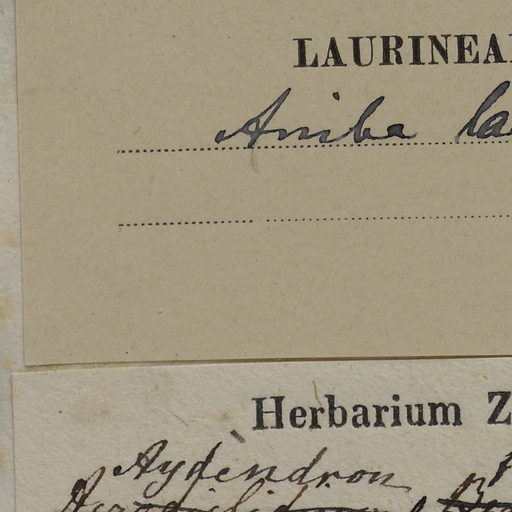 LAURINEA
Aniba la
Herbarium Z
Aydendron